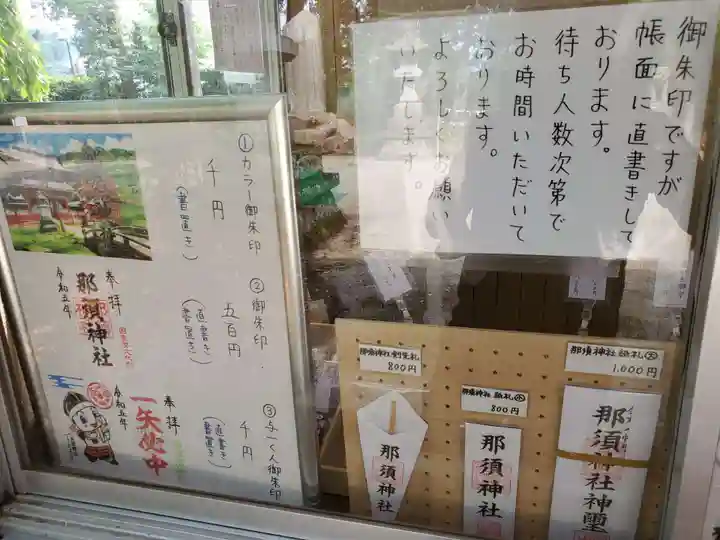 御朱印ですが
帳面に直書きして
おります。
待ち人数次第で
お時間いただいて
おります。
よろしくお願い
いたします。
①カラー御朱印
千円
(書置き)
②御朱印
五百円
(直書き
書置き)
③与一くん御朱印
千円
(直書き
書置き)
奉拝
那須神社
令和五年
奉拝
一矢必中
令和五年
那須神社剣先札
800円
那須神社
那須神社紙札
800円
那須神社
那須神社紙札
1,000円
那須神社神璽